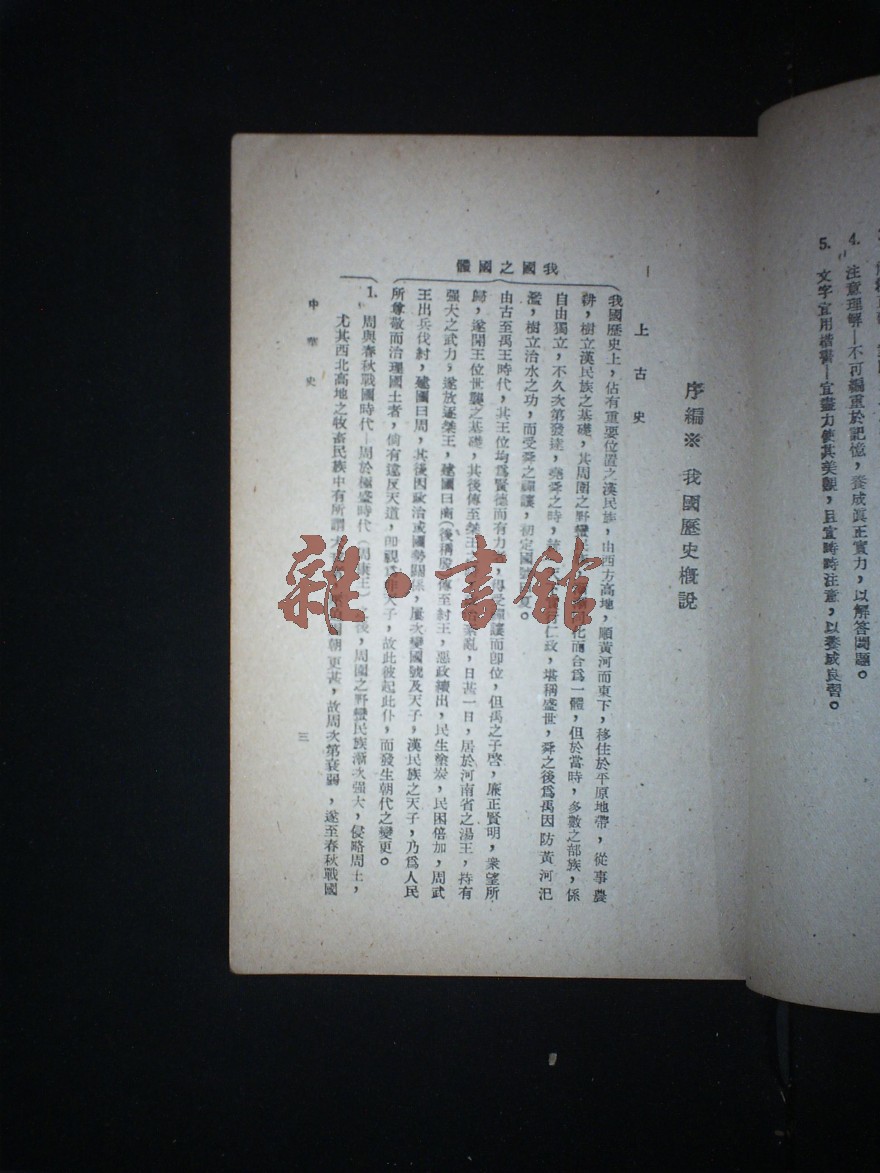 4. 注意理解—不可偏重於記憶，養成眞正實力，以解答問題。
5. 文字宜用楷書—宜盡力使其美觀，且宜時時注意，以養成良習。
序編※ 我國歷史概說
一 上古史
我國之國體
我國歷史上，佔有重要位置之漢民族，由西方高地，順黃河而東下，移住於平原地帶，從事農
耕，樹立漢民族之基礎，其周圍之野蠻 同化而合爲一體，但於當時，多數之部族，係
自由獨立，不久次第發達，堯舜之時， 仁政，堪稱盛世，舜之後爲禹因防黃河氾
濫，樹立治水之功，而受舜之禪讓，初定國 夏。
由古至禹王時代，其王位均爲賢德而有力 得受禪讓而卽位，但禹之子啓，廉正賢明，衆望所
歸，遂開王位世襲之基礎，其後傳至桀王 紊亂，日甚一日，居於河南省之湯王，持有
强大之武力，遂放逐桀王，建國曰商（後稱殷 傳至紂王，惡政續出，民生塗炭，民困倍加，周武
王出兵伐紂，建國曰周，其後因政治或國勢關係，屢次變國號及天子，漢民族之天子，乃爲人民
所尊敬而治理國土者，倘有違反天道，卽視 天子，故此彼起此仆，而發生朝代之變更。
1. 周與春秋戰國時代—周於極盛時代（周康王） 後，周圍之野蠻民族漸次强大，侵略周土，
尤其西北高地之牧畜民族中有所謂犬 朝更甚，故周次第衰弱，遂至春秋戰國
中華史
三
雜·書館